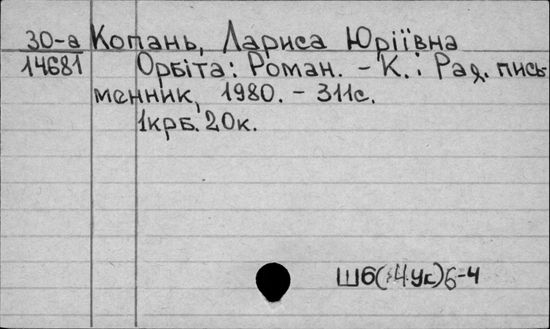 30-а Копань, Лариса Юріївна
14681 Орбіта: Роман. - К.: Рад. пись-
менник, 1980. - 311с.
1крб. 20к.
Ш6(4Ук)6-4